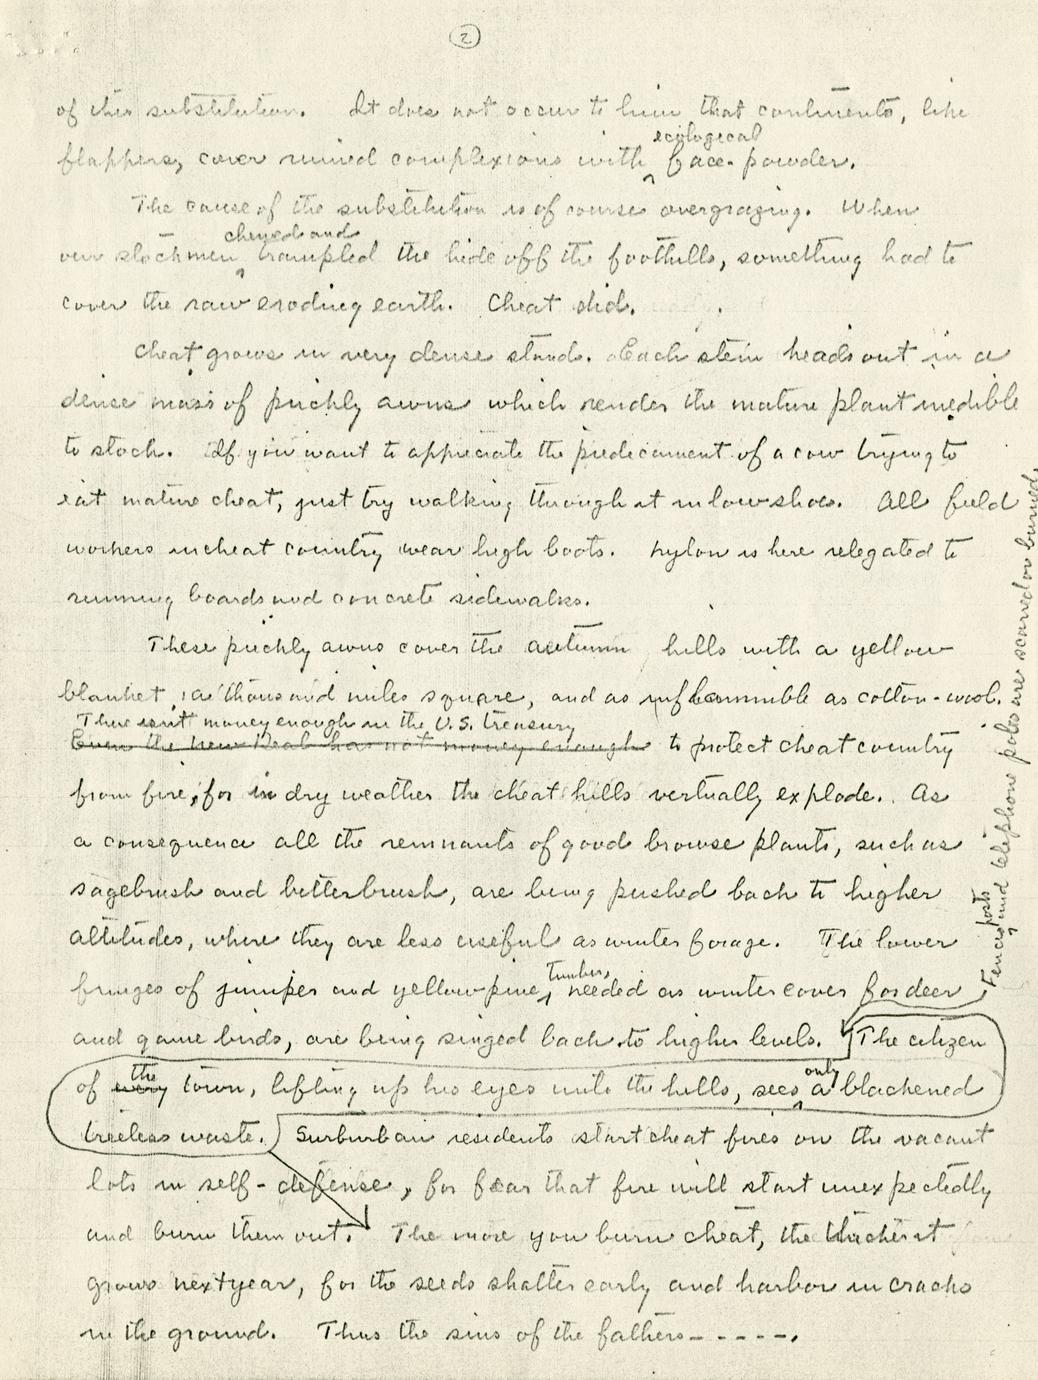 2
of this substitution. It does not occur to him that continents, like
ecological
flappers, cover ruined complexions with face-powder.
The cause of the substitution is of course overgrazing. When
chewed and
our stockmen trampled the hide off the foothills, something had to
cover the raw eroding earth. Cheat did.
Cheat grows in very dense stands. Each stem heads out in a
dense mass of prickly awns which render the mature plant inedible
to stock. If you want to appreciate the predicament of a cow trying to
eat mature cheat, just try walking through it in low shoes. All field
workers in cheat country wear high boots. Nylon is here relegated to
running boards and concrete sidewalks.
These prickly awns cover the autumn hills with a yellow
blanket, a thousand miles square, and as inflammible as cotton-wool.
There isn't money enough in the U.S. treasury
Even the New Deal has not money enough to protect cheat country
from fire, for in dry weather the cheat hills virtually explode. As
a consequence all the remnants of good browse plants, such as
sagebrush and bitterbrush, are being pushed back to higher
altitudes, where they are less useful as winter forage. The lower
fringes of juniper and yellowpine timber, needed as winter cover for deer
and game birds, are being singed back to higher levels. The citizen
the only
of every town, lifting up his eyes unto the hills, sees a blackened
treeless waste. Surburban residents start cheat fires on the vacant
lots in self-defense, for fear that fire will start unexpectedly
and burn them out. The more you burn cheat, the thicker it
grows next year, for the seeds shatter early and harbor in cracks
in the ground. Thus the sins of the fathers - - - - -.
Fence posts and telephone poles are scarred or burned.